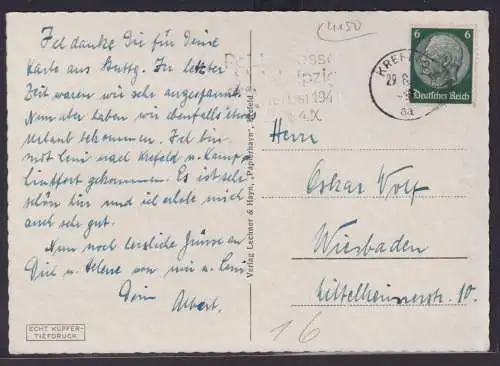 Ich danke Dir für Deine
Karte aus Stuttg. In letzter
Zeit waren wir sehr angespannt.
Nun aber haben wir ebenfalls etwas
Urlaub bekommen. Ich bin
mit Leni nach Krefeld u. Kamp-
lintfort gekommen. Es ist sehr
schön hier und ich erhole mich
auch sehr gut.
Nun noch herzliche Grüsse an
Dich u. Helene von mir u. Leni
Dein Albert.
ECHT KUPFER-
TIEFDRUCK
Verlag Lechner & Hayn, "Papierhayn", Krefeld
4150
6 6
Deutsches Reich
KREFELD
Herrn
Oskar Wolf
Wiesbaden
10.
16